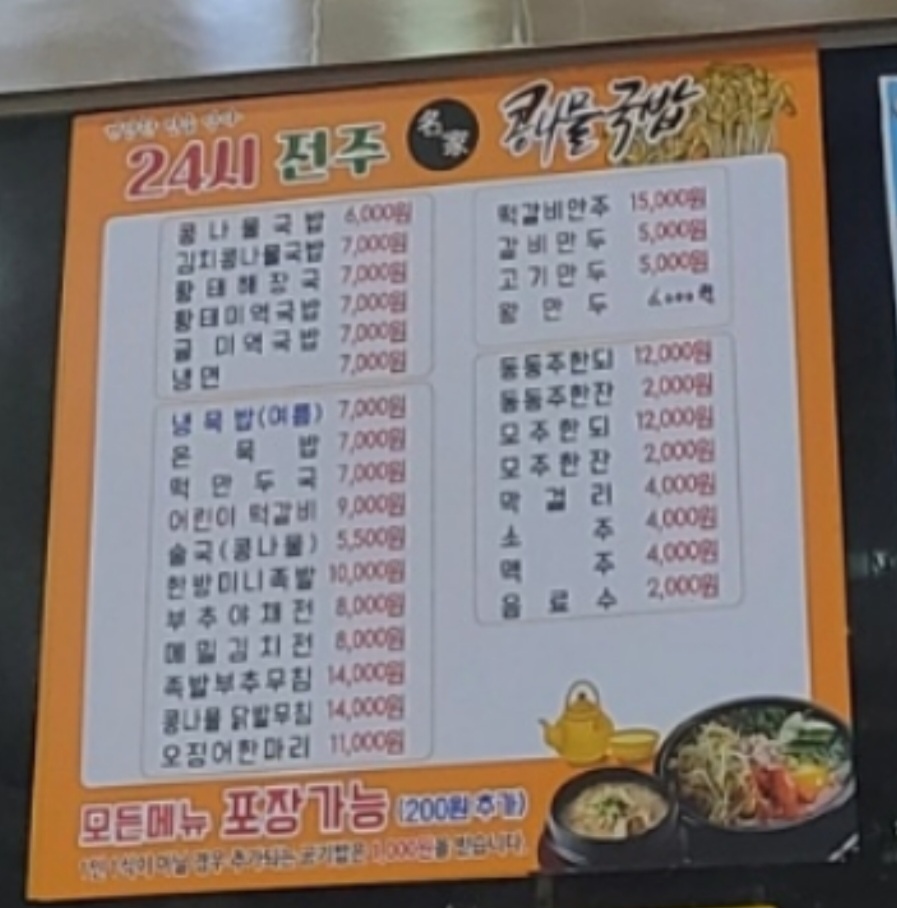 24시 전주 名家 콩나물국밥
콩나물국밥 6,000원
김치콩나물국밥 7,000원
황태해장국 7,000원
황태미역국밥 7,000원
굴 미역국밥 7,000원
냉면 7,000원
냉묵밥(여름) 7,000원
온묵밥 7,000원
떡만두국 7,000원
어린이 떡갈비 9,000원
술국(콩나물) 5,500원
한방미니족발 10,000원
부추야채전 8,000원
메밀김치전 8,000원
족발부추무침 14,000원
콩나물 닭발무침 14,000원
오징어한마리 11,000원
떡갈비안주 15,000원
갈비만두 5,000원
고기만두 5,000원
왕만두
동동주한되 12,000원
동동주한잔 2,000원
모주한되 12,000원
모주한잔 2,000원
막걸리 4,000원
소주 4,000원
맥주 4,000원
음료수 2,000원
모든메뉴 포장가능 (200원 추가)
1인1식이 아닐 경우 추가되는 공기밥은 1,000원을 받습니다.